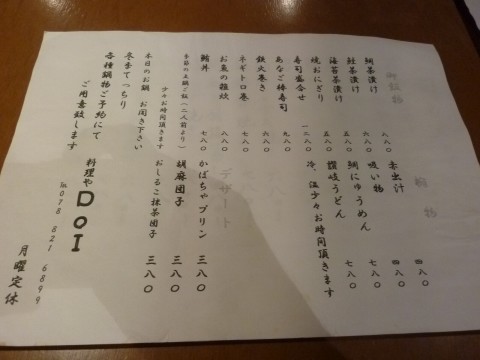 御飯物
鯛茶漬け 八八〇
鮭茶漬け 六八〇
海苔茶漬け 五八〇
焼おにぎり 五八〇
寿司盛合せ 一二八〇
あなご棒寿司 九八〇
鉄火巻き 七八〇
ネギトロ巻 七八〇
お魚の雑炊 八八〇
鮪丼 七八〇
季節の土鍋ご飯(二人前より)
少々お時間頂きます
本日のお鍋 お聞き下さい
冬季てっちり
各種鍋物ご予約にて
ご用意致します
椀物
赤出汁 四八〇
吸い物 四八〇
鯛にゅうめん 七八〇
讃岐うどん 七八〇
冷、温少々お時間頂きます
デザート
かぼちゃプリン 三八〇
胡麻団子 三八〇
おしるこ抹茶団子 三八〇
料理や DOI
℡ 078 821 6899
月曜定休